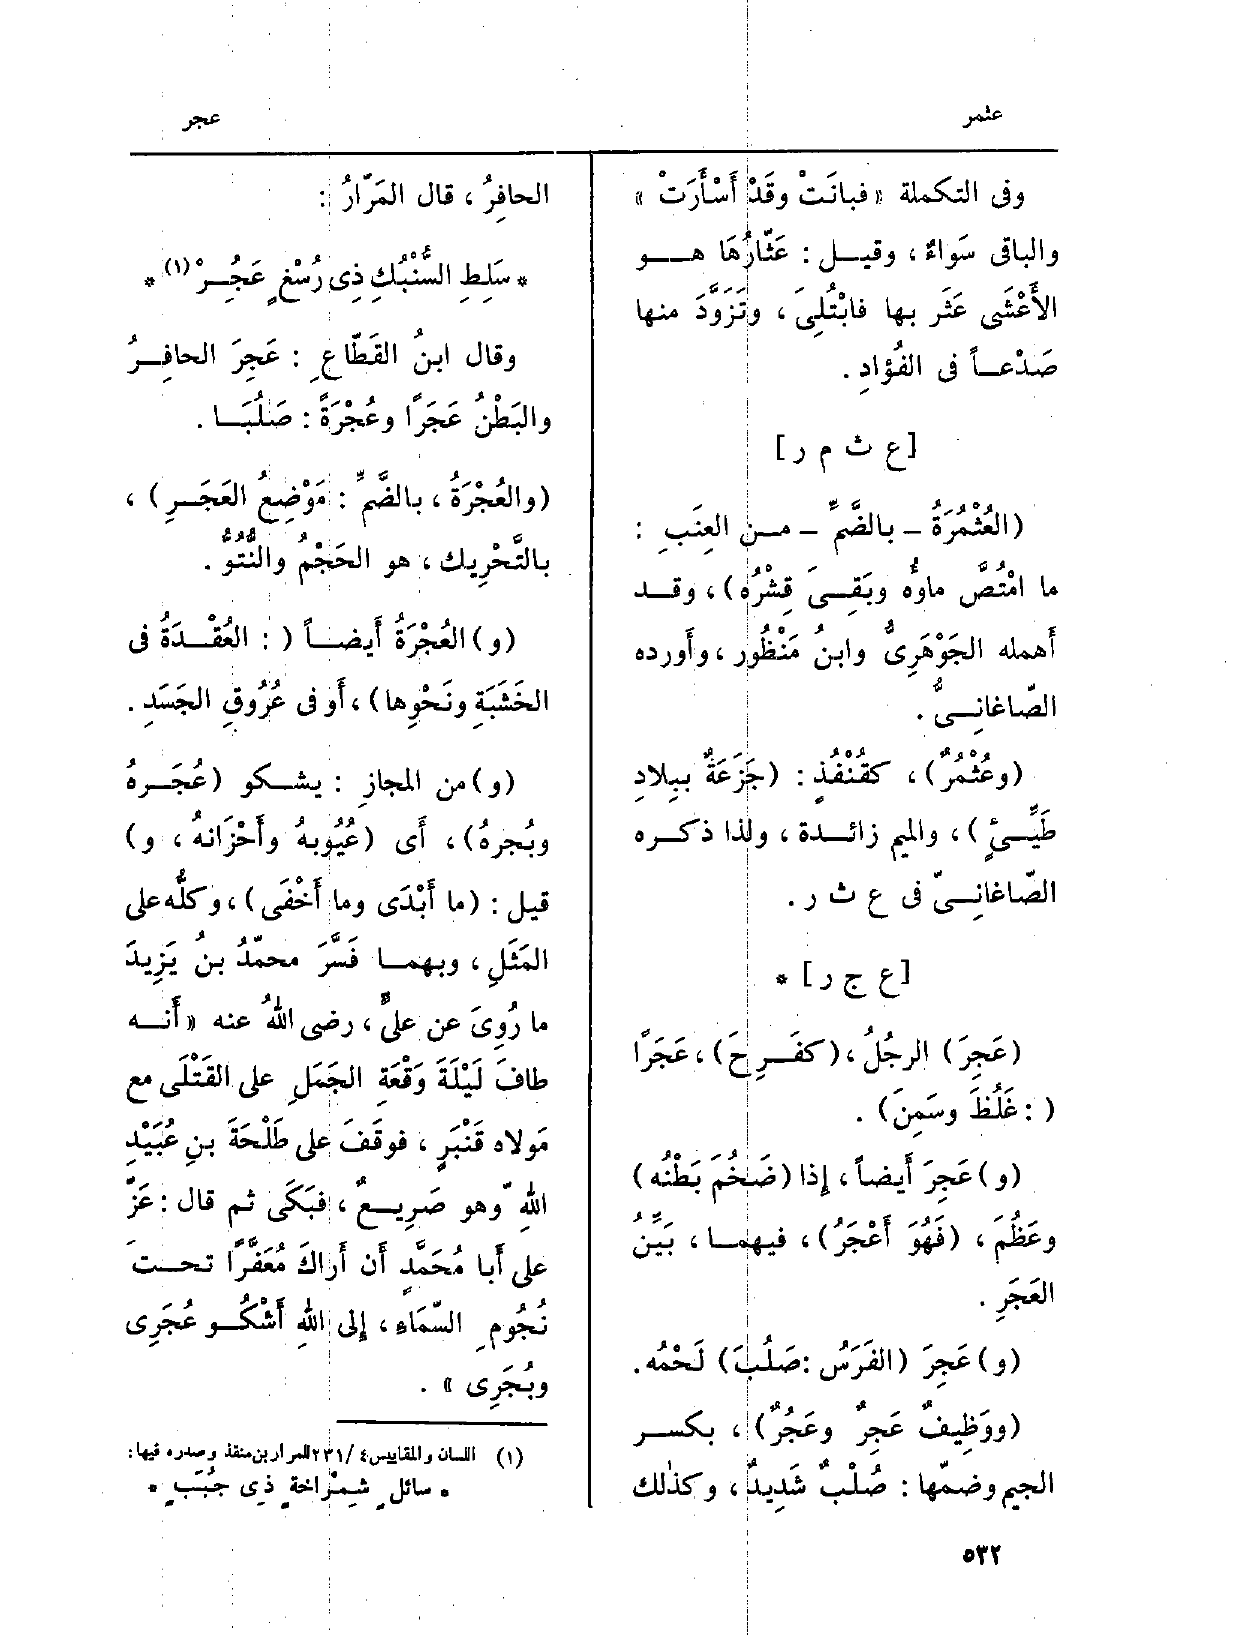 عثمر
عجر
وفى التكملة «فبانَتْ وقَدْ أَسْأَرَتْ»
والباقى سَواءٌ ، وقيل : عَثّارُهَا هـو
الأَعْشَى عَثَر بها فابْتُلِىَ ، وتَزَوَّدَ منها
صَدْعاً فى الفُؤادِ .
[ع ث م ر]
(العُثْمُرَةُ – بالضَّمِّ – مـن العِنَبِ :
ما امْتُصّ ماوُّه وبَقِـىَ قِشْرُه) ، وقـد
أهمله الجَوْهَرِىُّ وابنُ مَنْظُور ، وأورده
الصّاغانِـىُّ .
(وعُثْمُرٌ) ، كقُنْفُذٍ : (جَزَعَةٌ ببِلادِ
طَيِّـئٍ) ، والميم زائـدة ، ولذا ذكـره
الصّاغانِـىّ فى ع ث ر .
[ع ج ر] *
(عَجِرَ) الرجُلُ ، (كفَـرِحَ) ، عَجَرًا
( : غَلُظَ وسَمِنَ) .
(و) عَجِرَ أيضاً ، إذا (ضَخُمَ بَطْنُه)
وعَظُمَ ، (فَهُوَ أَعْجَرُ) ، فيهمـا ، بَيِّنُ
العَجَرِ .
(و) عَجِرَ (الفَرَسُ : صَلُبَ) لَحْمُه .
(ووَظِيفٌ عَجِرٌ وعَجُرٌ) ، بكسـر
الجيم وضمّها : صُلْبٌ شَدِيدٌ ، وكذٰلك
الحافِرُ ، قال المَرّارُ :
* سَلِطِ السُّنْبُكِ ذِى رُسْغٍ عَجُـرْ (١) *
وقال ابنُ القَطّاعِ : عَجِرَ الحافِـرُ
والبَطْنُ عَجَرًا وعُجْرَةً : صَلُبَـا .
(والعُجْرَةُ ، بالضَّمِّ : مَوْضِعُ العَجَـرِ) ،
بالتَّحْرِيك ، هو الحَجْمُ والنُّتُوُّ .
(و) العُجْرَةُ أيضـاً ( : العُقْـدَةُ فى
الخَشَبَةِ ونَحْوِها) ، أو فى عُرُوقِ الجَسَدِ .
(و) من المجازِ : يشـكو (عُجَـرهُ
وبُجرهُ) ، أى (عُيُوبهُ وأَحْزَانهُ ، و)
قيل : (ما أَبْدَى وما أَخْفَى) ، وكلُّه على
المَثَلِ ، وبهمـا فَسَّرَ محمّدُ بنُ يَزِيدَ
ما رُوِىَ عن علىٍّ ، رضى اللهُ عنه «أَنـه
طافَ لَيْلَةَ وَقْعَةِ الجَمَلِ على القَتْلَى مع
مَولاه قَنْبَرٍ ، فوقَفَ على طَلْحَةَ بنِ عُبَيْدِ
اللهِ وهو صَرِيـعٌ ، فبَكَى ثم قال : عَزَّ
على أَبا مُحَمَّدٍ أن أَراكَ مُعَفَّرًا تحـتَ
نُجُومِ السّمَاءِ ، إلى اللهِ أَشْكُـو عُجَرِى
وبُجَرِى» .
(١) اللسان والمقاييس ٤ /٢٣١ للمرار بن منقذ وصدره فيها :
* سائلٍ شِمْرَاخُهُ ذى جُبَبٍ *
٥٣٢